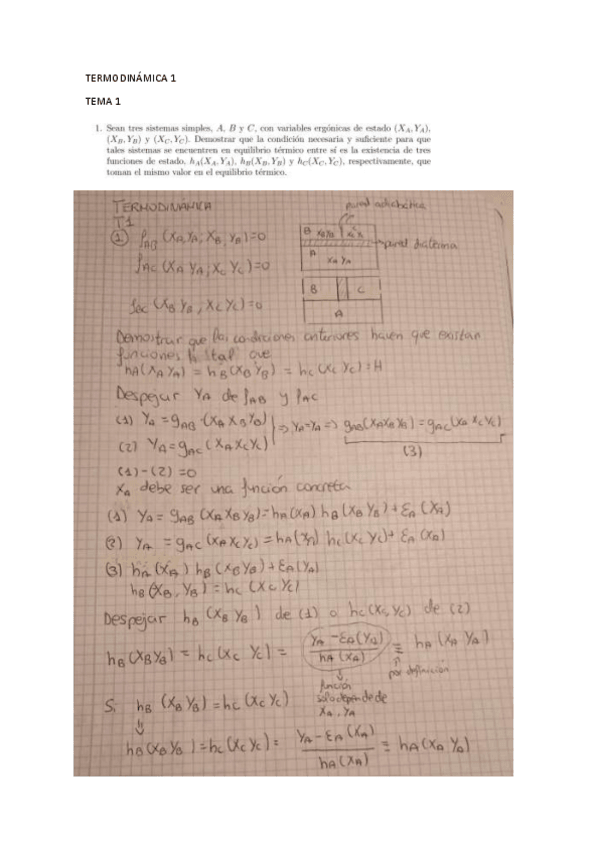 TERMODINÁMICA 1
TEMA 1
1. Sean tres sistemas simples, A, B y C, con variables ergónicas de estado (X_A, Y_A),
(X_B, Y_B) y (X_C, Y_C). Demostrar que la condición necesaria y suficiente para que
tales sistemas se encuentren en equilibrio térmico entre sí es la existencia de tres
funciones de estado, h_A(X_A, Y_A), h_B(X_B, Y_B) y h_C(X_C, Y_C), respectivamente, que
toman el mismo valor en el equilibrio térmico.
TERMODINÁMICA
pared adiabática
T1
① ρ_AB (X_A Y_A; X_B, Y_B)=0
B X_B Y_B X_C Y_C
pared diaterma
A
X_A Y_A
ρ_AC (X_A Y_A; X_C Y_C)=0
B C
A
ρ_BC (X_B Y_B; X_C Y_C)=0
Demostrar que las condiciones anteriores hacen que existan
funciones h tal que
h_A(X_A Y_A) = h_B(X_B Y_B) = h_C(X_C Y_C) = H
Despejar Y_A de ρ_AB y ρ_AC
(1) Y_A = g_AB (X_A X_B Y_B)
(2) Y_A = g_AC (X_A X_C Y_C)
⇒ Y_A = Y_A ⇒ g_AB(X_A X_B Y_B) = g_AC (X_A X_C Y_C)
(3)
(1)-(2) = 0
X_A debe ser una función concreta
(1) Y_A = g_AB (X_A X_B Y_B) = h_A(X_A) h_B (X_B Y_B) + ε_A (X_A)
(2) Y_A = g_AC (X_A X_C Y_C) = h_A (X_A) h_C (X_C Y_C) + ε_A (X_A)
(3) h_A (X_A) h_B (X_B Y_B) + ε_A (Y_A)
h_B (X_B, Y_B) = h_C (X_C Y_C)
Despejar h_B (X_B Y_B) de (1) o h_C(X_C, Y_C) de (2)
h_B (X_B Y_B) = h_C (X_C Y_C) = (Y_A - ε_A (Y_A)) / h_A (X_A) ≡ h_A (X_A Y_A)
por definición
función
solo depende de
X_A, Y_A
Si h_B (X_B Y_B) = h_C (X_C Y_C)
⇓
h_B (X_B Y_B) = h_C (X_C Y_C) = (Y_A - ε_A (X_A)) / h_A (X_A) ≡ h_A (X_A Y_A)